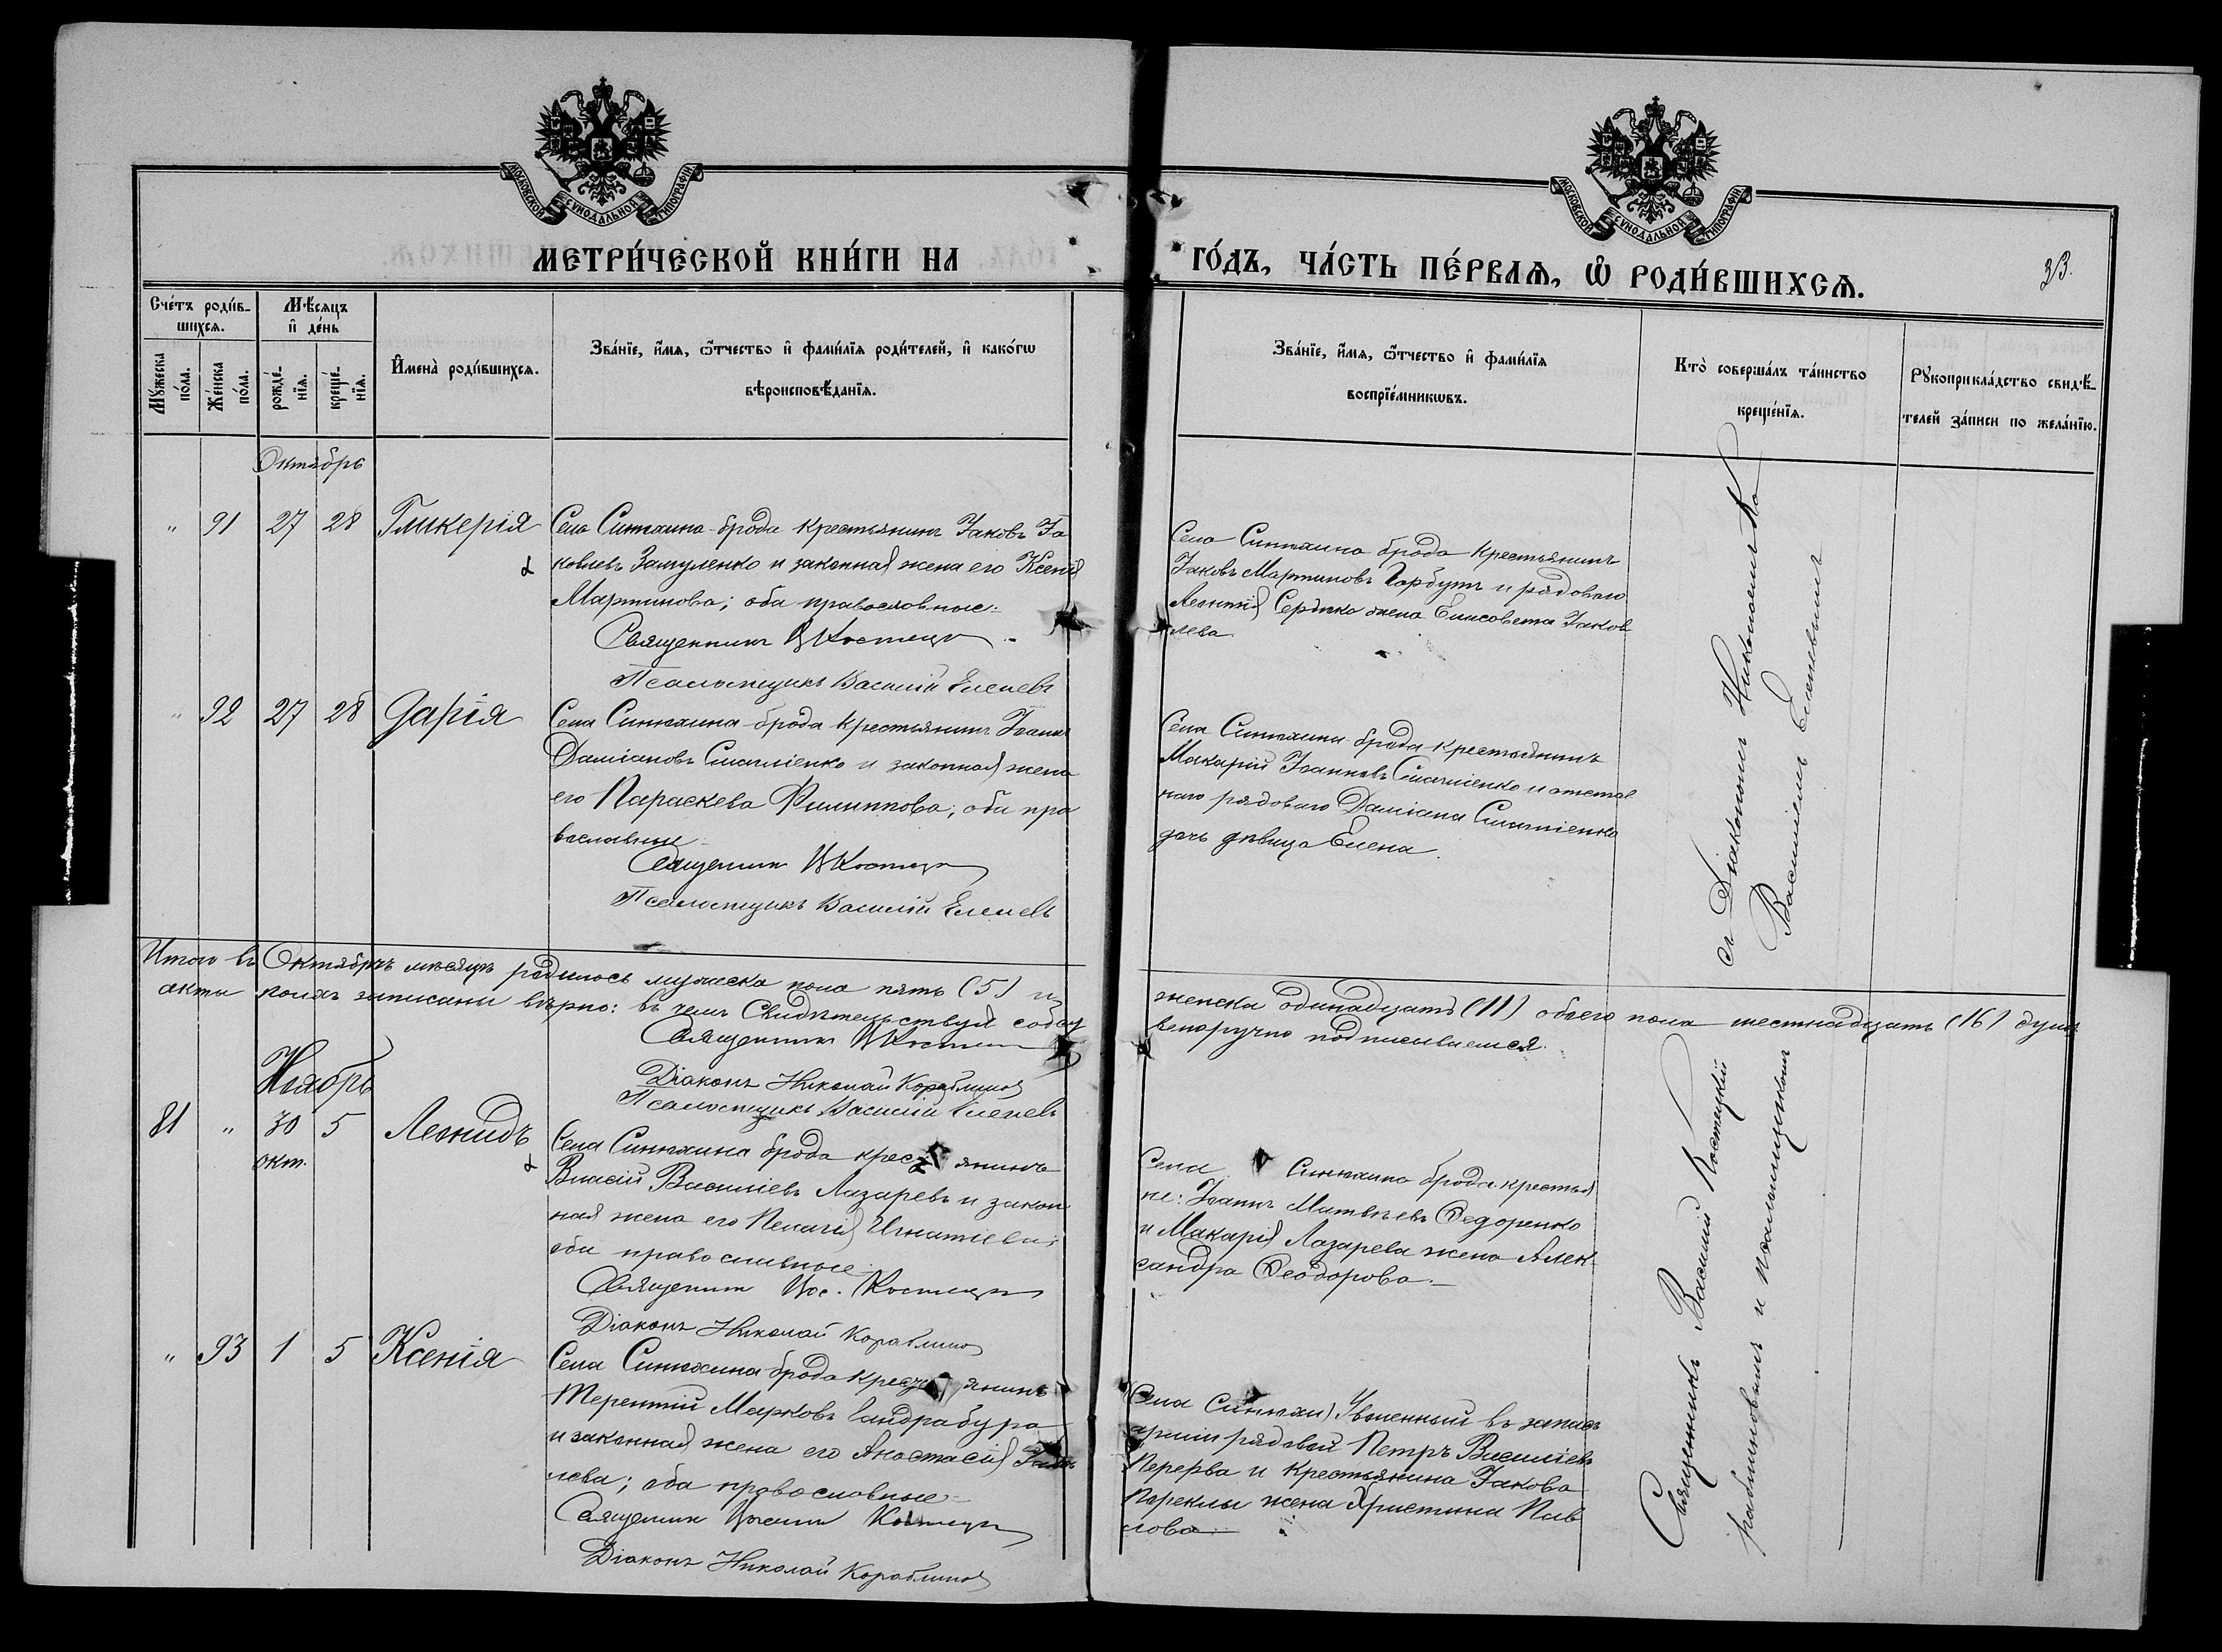 МОСКОВСКОЙ СѴНОДАЛЬНОЙ ТИПОГРАФІИ
МОСКОВСКОЙ СѴНОДАЛЬНОЙ ТИПОГРАФІИ
МЕТРИ́ЧЕСКОЙ КНИ́ГИ НА
ГО́ДЪ, ЧА́СТЬ ПЕ́РВАѦ, Ѽ РОДИ́ВШИХСѦ.
33.
Сче́тъ роди́в-
шихсѧ.
Мꙋ́жеска
по́ла.
Же́нска
по́ла.
Мѣ́сѧцъ
и҆ де́нь
рожде́-
нїѧ.
креще́-
нїѧ.
И҆мена̀ роди́вшихсѧ.
Зва́нїе, и҆́мѧ, ѻ҆́тчество и҆ фами́лїѧ роди́телей, и҆ како́гѡ
вѣроисповѣ́данїѧ.
Зва́нїе, и҆́мѧ, ѻ҆́тчество и҆ фами́лїѧ
воспрїе́мникѡвъ.
Кто̀ соверша́лъ та́инство
креще́нїѧ.
Рꙋкоприкла́дство свидѣ́-
телей за́писи по жела́нїю.
Октябрь
" 91 27 28 Гликерія
Села Синюхина-брода крестьянинъ Іаковъ Іа
ковлевъ и законная жена его Ксенія
Мартинова; оба православные.
Священникъ В Костецкій
Псаломщикъ Василій Еленевъ
Села Синюхина брода крестьянинъ
Іаковъ Мартиновъ Горбунъ и рядоваго
Леонтія Сердюка жена Елисовета Іаков
лева
" 92 27 28 Дарія
Села Синюхина-брода крестьянинъ Іоаннъ
Даміановъ и законная жена
его Параскева Филиппова; оба пра
вославные
Священникъ В Костецкій
Псаломщикъ Василій Еленевъ
Села Синюхина брода крестьянинъ
Макарій Іоанновъ и отстав
наго рядоваго Даміана
дочь дѣвица Елена.
съ Діакономъ Николаемъ Ко
Василіемъ Еленевымъ
Итого въ Октябрѣ мѣсяцѣ родилось мужеска пола пять (5) и
женска одинадцать (11) обоего пола шестнадцать (16) душъ
акты полхъ записаны вѣрно: въ чемъ Свидѣтельствуя собст
венноручно подписываемся.
Священникъ В Костецкій
Діаконъ Николай Кораблиновъ
Псаломщикъ Василій Еленевъ
Ноябрь
81 " 30 5 Леонидъ
окт.
Села Синюхина брода крестьянинъ
Власій Василіевъ Лазаревъ и закон
ная жена его Пелагія Игнатіева;
оба православные.
Священникъ Вас. Костецкій
Діаконъ Николай Кораблиновъ
Села Синюхина брода крестья
не: Іоаннъ Матвѣевъ Федоренко
и Макарія Лазарева жена Алек-
сандра Феодорова.
" 93 1 5 Ксенія
Села Синюхина-брода крестьянинъ
Терентій Марковъ Гандрабура
и законная жена его Анастасія Іаков
лева; оба православные
Священникъ Василій Костецкій
Діаконъ Николай Кораблиновъ
Села Синюхи) Уволенный въ запасъ
арміи рядовой Петръ Василіевъ
Перерва и крестьянина Іакова
Пареклы жена Христина Пав
лова.
Священникъ Василій Костецкій
раблиновымъ и псаломщикомъ